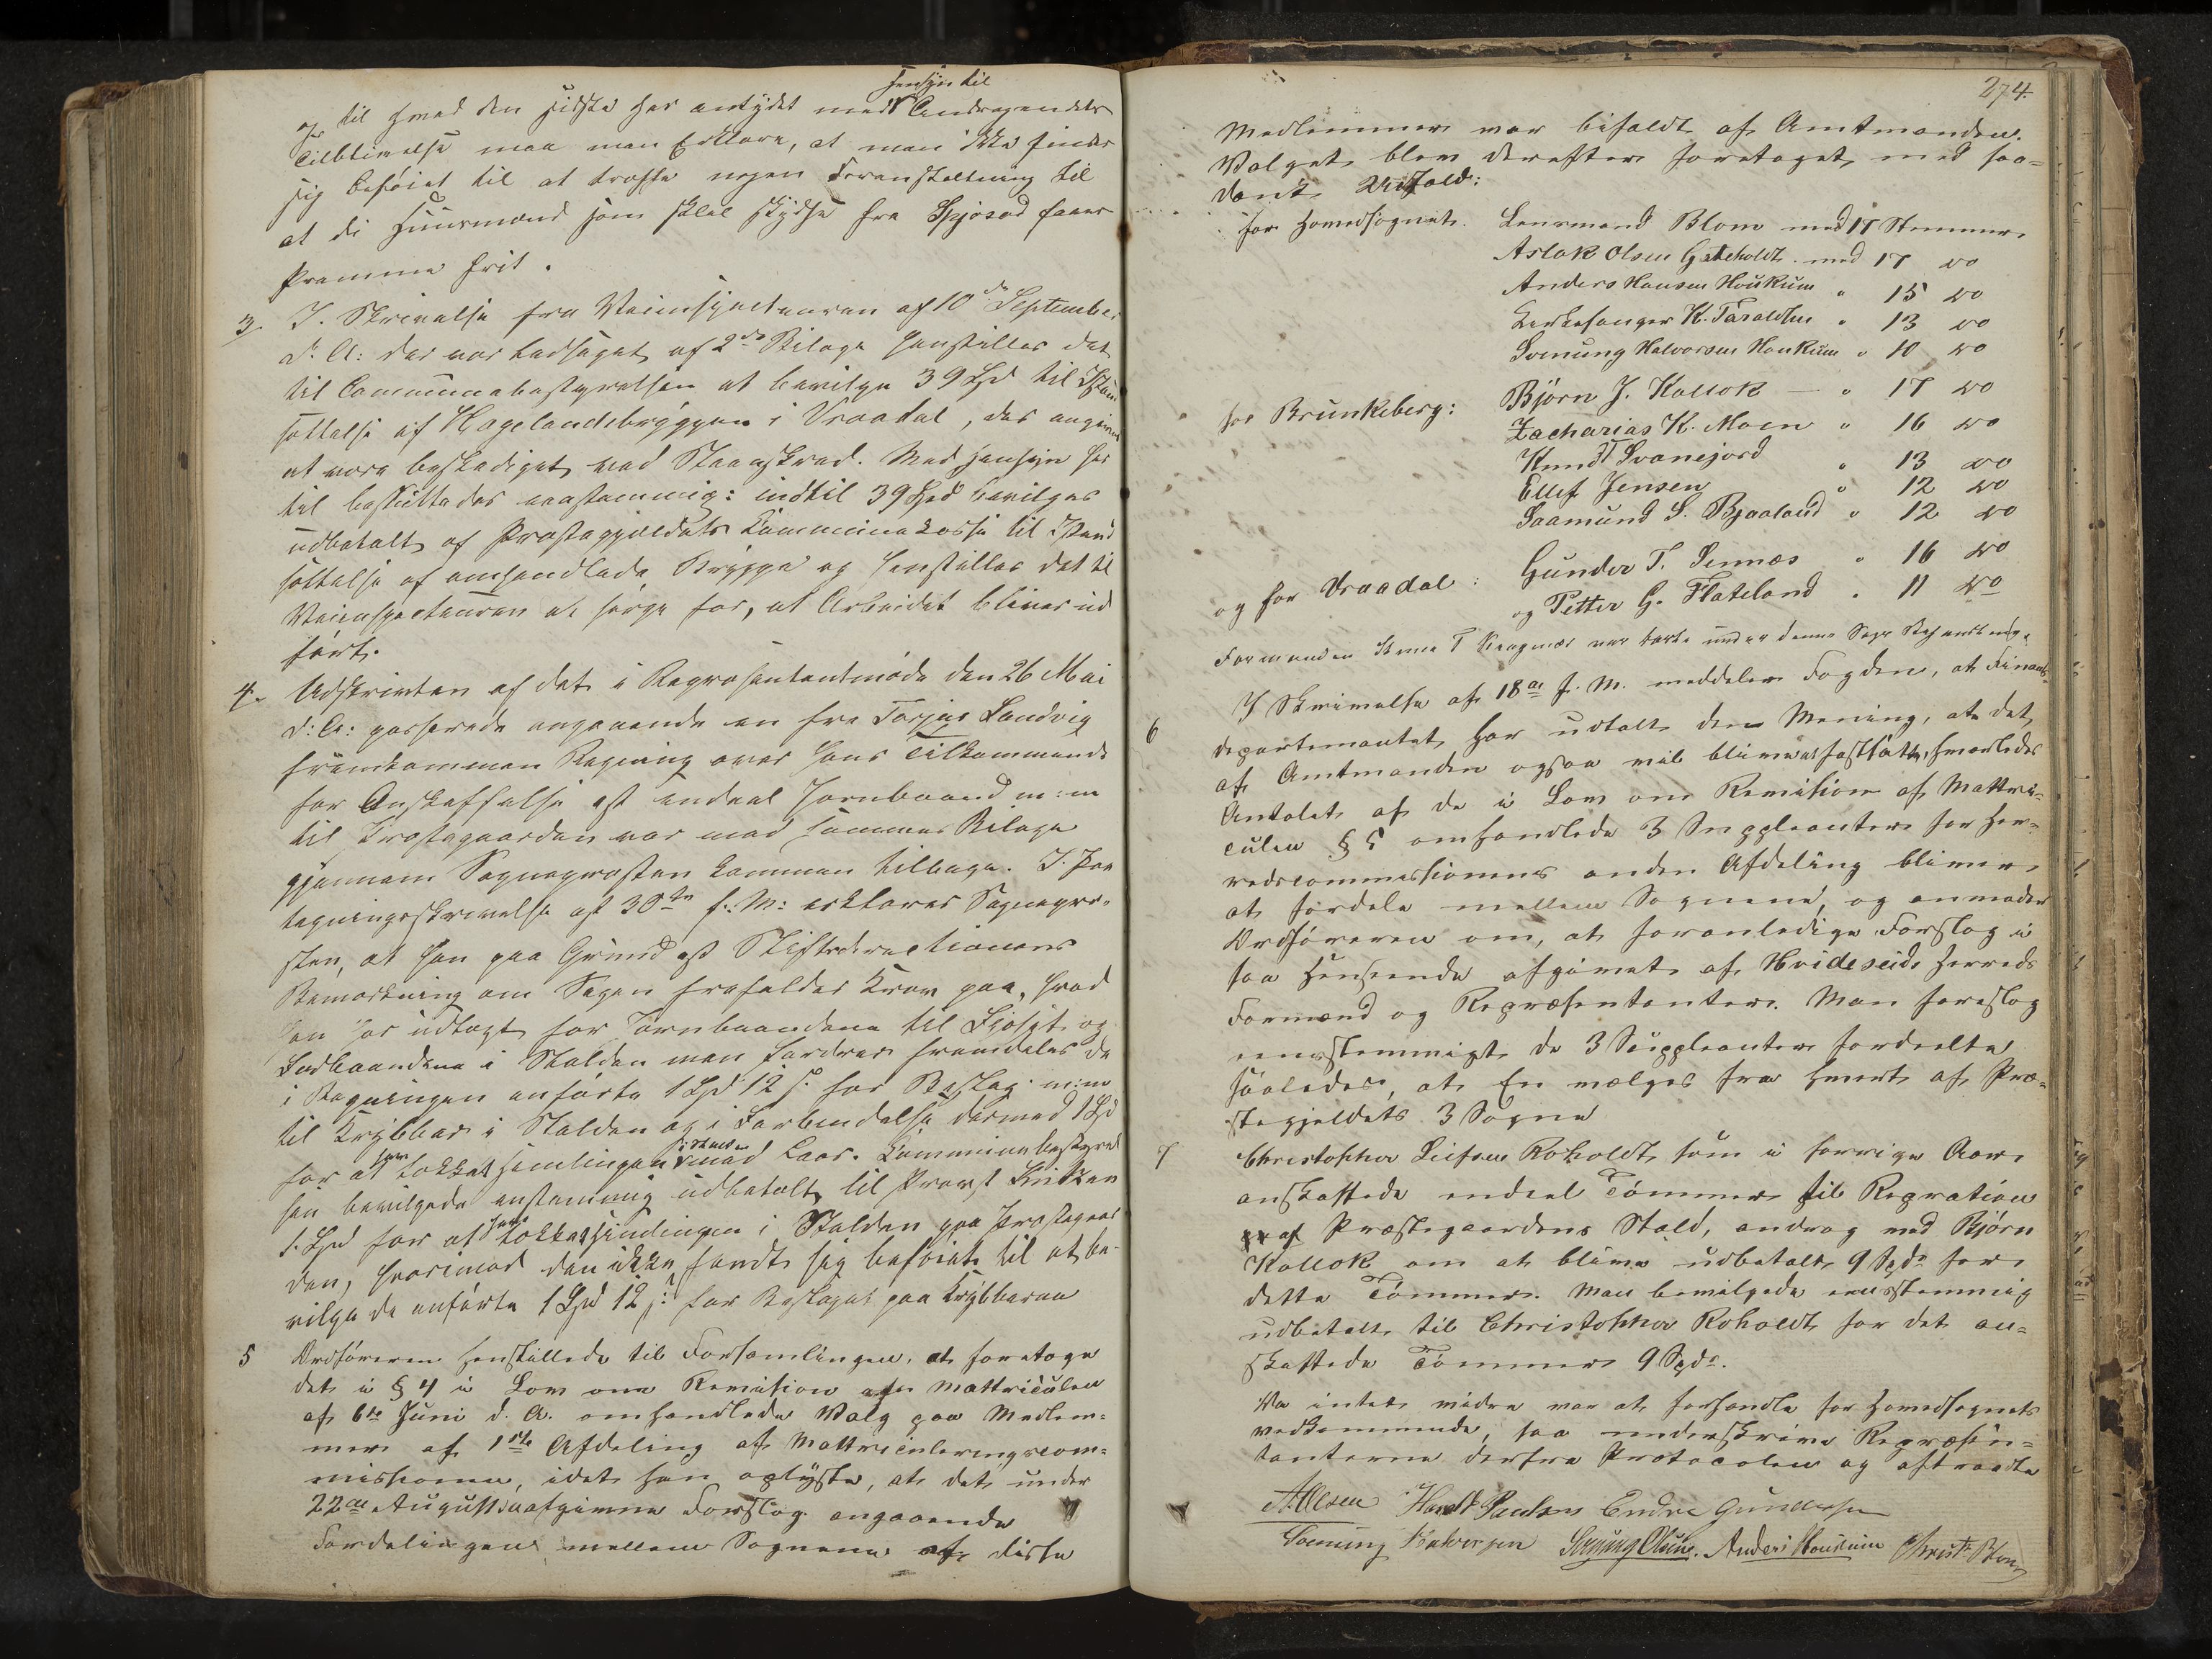 hensyn til
og til hvad den sidste har antydet med Andragendets
Tilblivelse maa man Erklære, at man ikke finder
sig beføiet til at træffe nogen Foranstaltning til
at de Huusmænd som skal skydse fra Spjosod faaer
Pramme frit.
3. I Skrivelse fra Veiinspecteuren af 10de September
d. A: der var ledsaget af 2de Bilage henstilles det
til Communebestyrelsen at bevilge 39 Spd til Istand
sættelse af Hagelandsbryggen i Vraadal, der angives
at være beskadiget ved Steenskred. Med Hensyn her
til besluttedes eenstemmig: indtil 39 Spd bevilges
udbetalt af Præstegjældets Kommunekasse til Istand
sættelse af omhandlede Brygge og henstilles det til
Veiinspecteuren at sørge for, at Arbeidet bliver ud
ført.
4. Udskriften af det i Repræsentantmøde den 26 Mai
d: A: passerede angaaende en fra Torjus Sandvig
fremkommen Regning over hans Tilkommende
for Anskaffelse af endeel Jernbaand m: m
til Præstegaarden var med sammes Bilage
gjennem Sognepræsten kommen tilbage. I Paa
tegningsskrivelse af 30te f: M: erklærer Sognepræ-
sten, at han paa Grund af Stiftsdirectionens
Bemærkning om Sagen frafalder Krav paa, hvad
han har udlagt for Jernbaandene til Fjøset og
Ledbaandene i Stalden men fordrer fremdeles de
i Regningen anførte 1 Spd 12 s. for Beslag m: m
til Krybber i Stalden og i Forbindelse dermed 1 Spd
for at have lukket Hemlingen i Stalden med Laas. Kommunebestyrel
sen bevilgede enstemmig udbetalt til Provst Knutzen
1. Spd for at have lukket Hemlingen i Stalden paa Præstegaar
den, hvorimod den ikke fandt sig beføiet til at be-
vilge de anførte 1 Spd 12 s. for Beslaget paa Krybberne
5 Ordføreren henstillede til Forsamlingen, at foretage
det i § 4 i Lov om Revision af Matriculen
af 6te Juni d. A. omhandlede Valg paa Medlem=
mer af 1ste Afdeling af Matriculeringscom=
missionen, idet han oplyste, at det under
22de August afgivne Forslag angaaende
Fordelingen mellem Sognene af disse
274.
Medlemmer var bifaldt af Amtmanden.
Valget blev derefter foretaget med saa=
dant Udfald:
for Hovedsognet. Lensmand Blom med 17 Stemmer
Aslak Olsen Gataholdt med 17 do
Anders Hansen Houkum " 15 do
Kirkesanger K. Taraldsen " 13 do
Svenung Halvorsen Houkum " 10 do
for Brunkeberg: Björn J. Kollok — " 17 do
Zacharias K. Moen " 16 do
Knud T Svanejord " 13 do
Ellef Jensen " 12 do
Saamund S. Bjaaland " 12 do
og for Vraadal: Gunder T. Semnæs " 16 do
og Petter G. Flateland " 11 do
Formanden T var borte under denne Sags Behandling.
6 I Skrivelse af 18de f. M. meddeler Fogden, at Finants-
departementet har udtalt den Mening, at det
af Amtmanden ogsaa vil blive at fastsætte, hvorledes
Antalet af de i Lov om Revision af Matri=
culen § 5 omhandlede 3 Suppleanter for Her=
redscommissionens anden Afdeling bliver
at fordele mellem Sognene, og anmoder
Ordføreren om, at foranledige Forslag i
saa Henseende afgivet af Hvideseids Herreds
Formænd og Repræsentanter. Man foreslog
eenstemmigt de 3 Suppleanter fordeelte
saaledes, at En vælges fra hvert af Præ=
stegjeldets 3 Sogne
7 Christopher Leifsen Roholdt, som i forrige Aar
anskaffede endeel Tømmer til Repration
af Præstegaardens Stald, androg ved Björn
Kollok om at blive udbetalt 9 Spd. for
dette Tømmer. Man bevilgede eenstemmig
udbetalt til Christopher Roholdt for det an=
skaffede Tømmer 9 Spd.
Da intet videre var at forhandle for Hovedsognets
vedkommende, saa underskrive Repræsen=
tanterne derfra Protocolen og aftraadte
A. Olsen Harald Paulsen Endre Gundersen
Svenung Halvorsen Svenung Olsen. Anders Houkum Christ. Blom